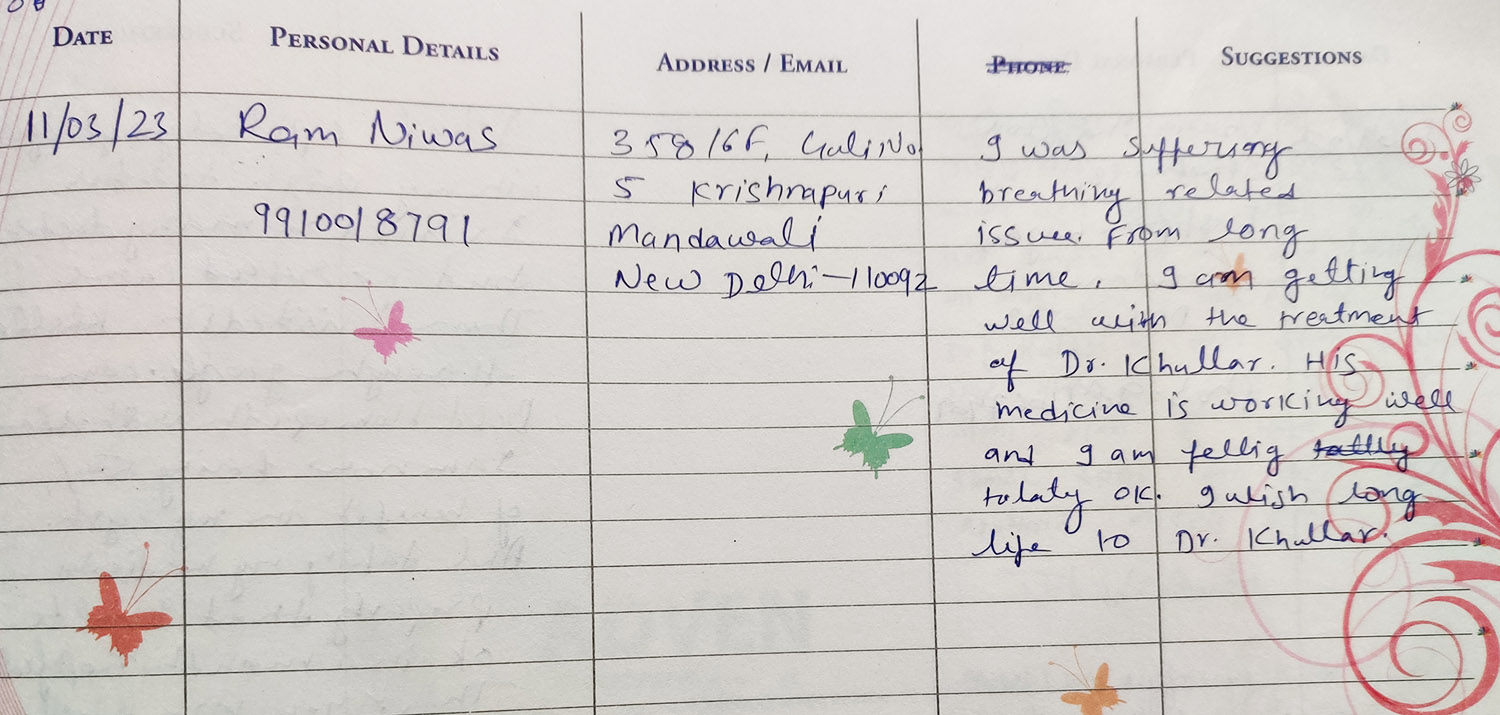 DATE PERSONAL DETAILS ADDRESS / EMAIL PHONE SUGGESTIONS
11/03/23 Ram Niwas 358/6F, Gali No I was suffering
5 Krishnapuri breathing related
9910018791 Mandawali issuee. From long
New Delhi-110092 time. I am getting
well with the treatment
of Dr. Khullar. His
medicine is working well
and I am fellig
tolaty OK. I wish long
life to Dr. Khullar.